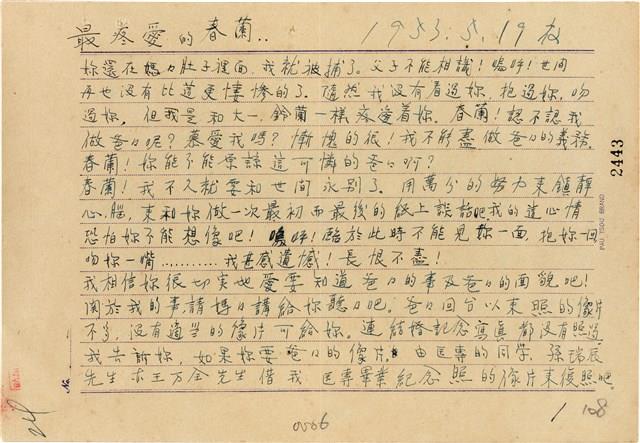 最疼愛的春蘭..
1953.5.19夜
妳還在媽々肚子裡面,我就被捕了。父子不能相識!嗚呼!世间
再也没有比這更悽惨的了。雖然我没有看過妳,抱過妳,吻
過妳,但我是和大一、鈴蘭一樣疼愛着妳。春蘭!認不認我
做爸々呢?慕愛我嗎?慚愧的很!我不能盡做爸々的義務。
春蘭!妳能不能原諒這可憐的爸々啊?
春蘭!我不久就要和世间永別了。用萬分的努力來鎮靜
心腦,來和妳做一次最初而最後的紙上談話吧。我的這心情
恐怕妳不能想像吧!嗚呼!臨於此時不能見妳一面,抱妳一回
吻妳一嘴............我甚感遺憾!長恨不盡!
我相信妳很切实也愛要知道爸々的事及爸々的面貌吧!
関於我的事請媽々講給妳聽々吧。爸々回台以來照的像片
不多,没有適当的像片可給妳。連結婚記念寫真都没有照過
我告訴妳,如果妳要爸々的像片,由医專的同学,孫瑞辰
先生亦王万全先生借我医專畢業紀念照的像片來復照吧。
2443
PAU TSONG BRAND
No.
24
0066
1
108